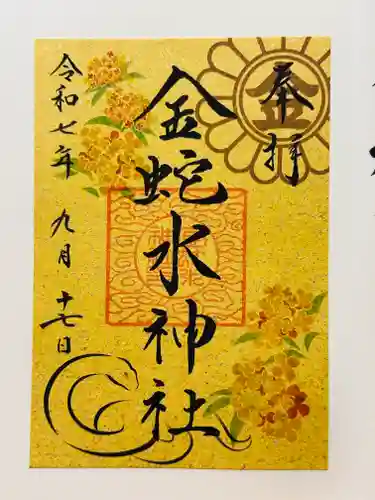 奉拝
金
金蛇水神社
令和七年
九月
十七日